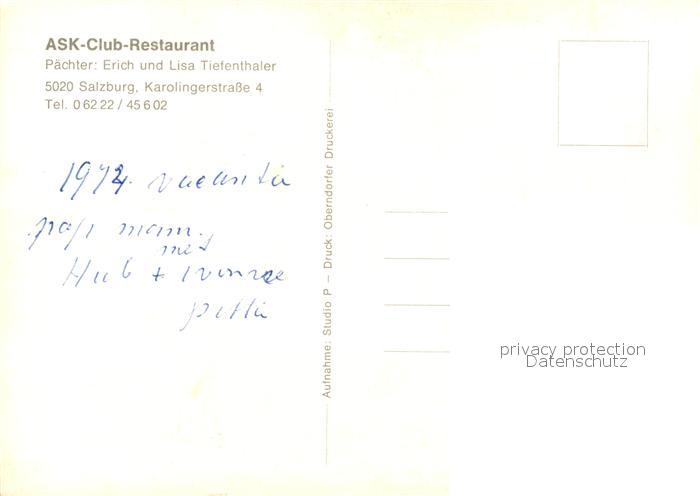 ASK-Club-Restaurant
Pächter: Erich und Lisa Tiefenthaler
5020 Salzburg, Karolingerstraße 4
Tel. 0 62 22 / 45 6 02
vacantie
mam.
met
Hub +
Aufnahme: Studio P – Druck: Oberndorfer Druckerei
privacy protection
Datenschutz